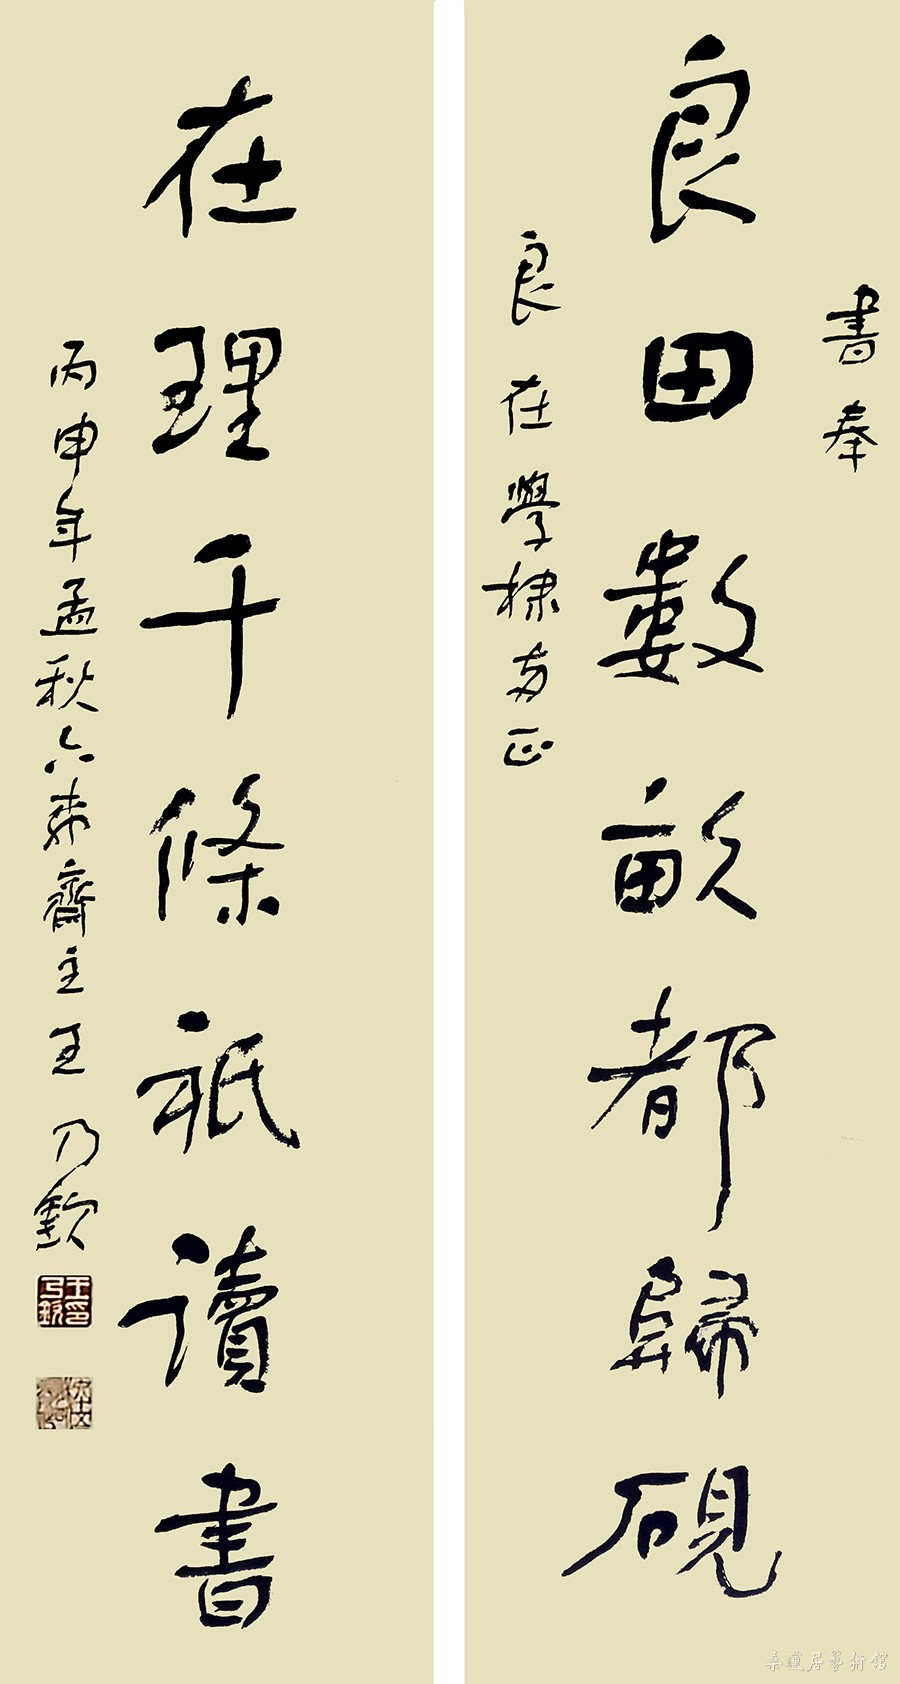 書奉
良田數畝都歸硯
良在學棣方正
在理千條祇讀書
丙申年孟秋六來齋主王乃欽
王乃欽印
桑蓮居藝術館